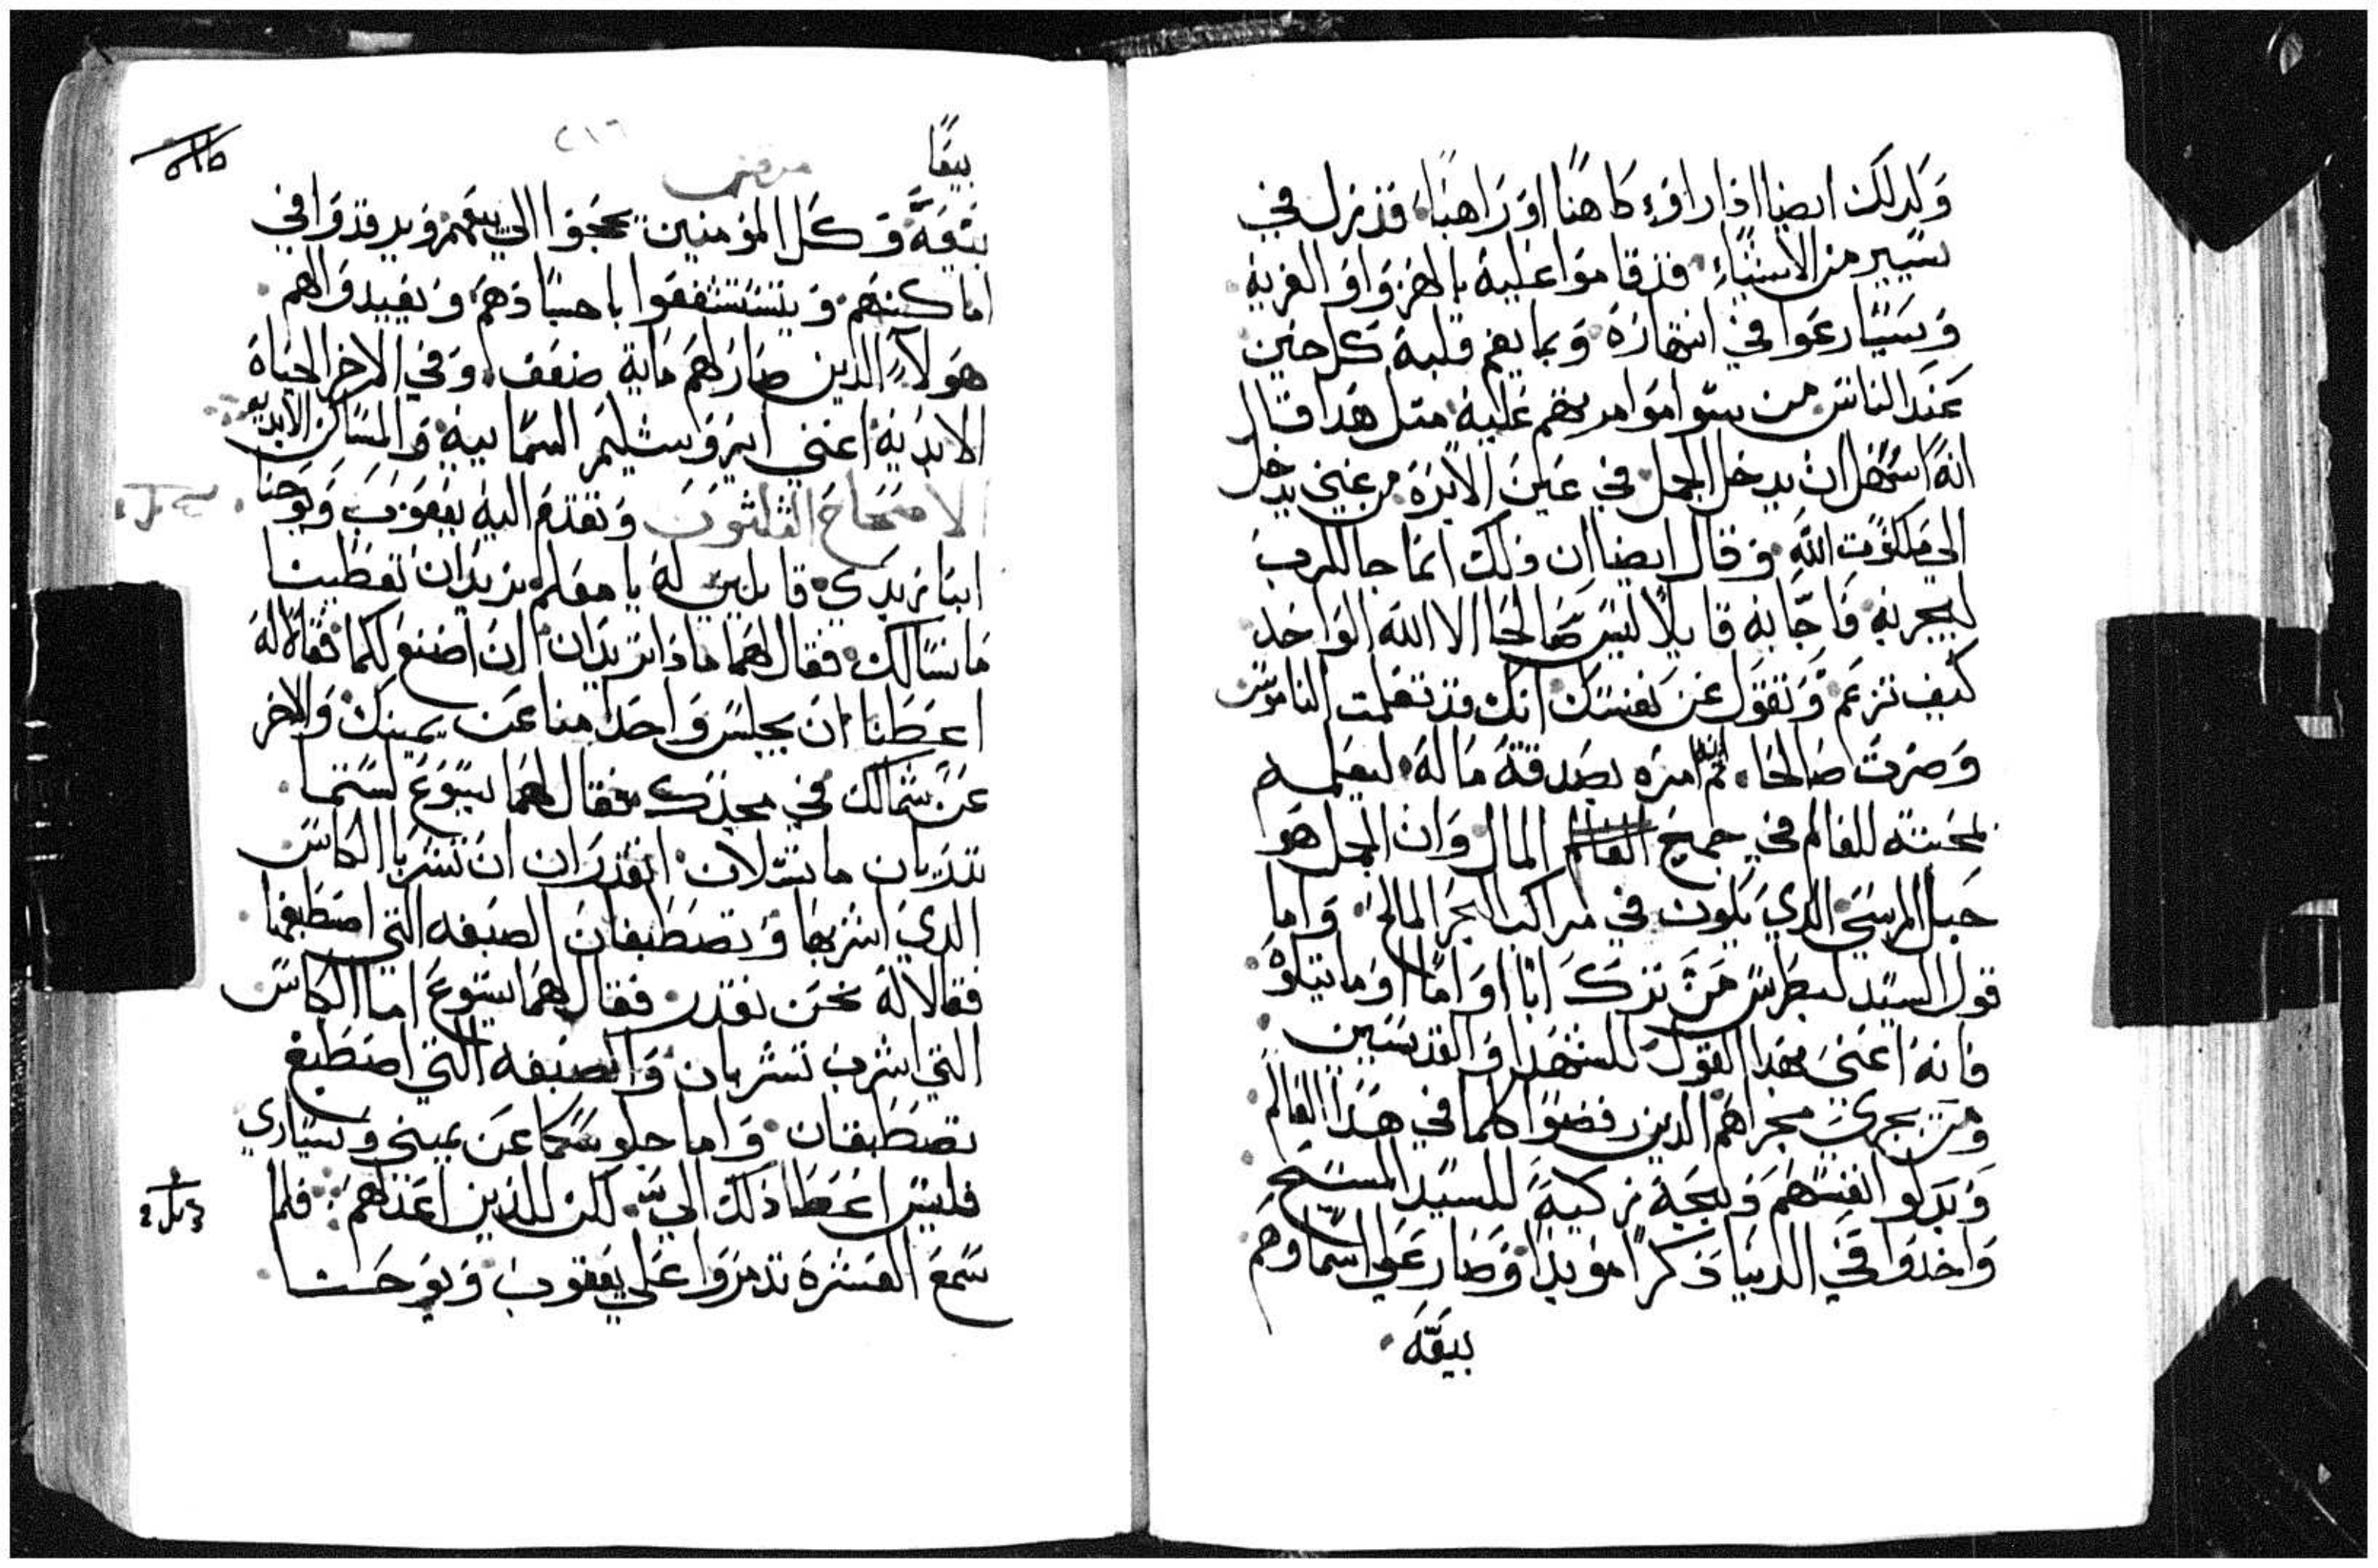 وكدلك ايضا اذا راوء كاهنًا او راهبًا، قد نزل في
يسير من الاشياء، قد قاموا عليه بالهزو او الفريه
ويسارعوا في انتهاره وبما يغم قلبه كل حين
عند الناس من سوامرهم عليه متل هدا قال
انه اسهل ان يدخل الجمل في عين الابره من غني يدخل
الي ملكوت الله وقال ايضا ان ذلك انما جا للرب
ليجربه فاجابه قايلا ليس صالحا الا الله الواحد
كيف تزعم وتقول عن نفسك انك قد تعلمت الناموس
وصرت صالحا، تم ايضا امره بصدقة ماله، ليعلمه
بمحبته للعالم في جميع المال وان الجمل هو
حبل المرسي الدي يكون في مراكب البحر المالح، واما
قول السيد لبطرس من ترك ابا او اما او ما يتلوه
فانه اعني بهدا القول للشهدا والقديسين
ومن يجري مجراهم الدين رفضوا كلما في هدا العالم
وبدلو انفسهم ولجة زكية للسيد المسيح
واخدوا في الدنيا دكرا موبدا وصار علي اسماوهم
بيعه
بيعًا
٢١٦
مرقس
بيعة وكل المومنين يحجوا الي بيعهم ويرقدوا في
اماكنهم ويتشفعوا باجسادهم ويعيدوا لهم
هولاء الدين صار لهم ماية ضعف، وفي الاخر الحياة
الابدية اعني ايروشليم السمايية والمساكن الابديه
الاصحاح الثلثون وتقدم اليه يعقوب ويوحنا
ابنا زبدي قايلين له يا معلم نريد ان تعطينا
ما نسالك فقال لهما ماذا تريدان ان اصنع لكما فقالا له
اعطنا ان يجلس واحد منا عن يمينك والاخر
عن شمالك في مجدك فقال لهما يسوع لستما
تدريان ما تسلان اتقدران ان تشربا الكاس
الدي اشربها وتصطبغان الصبغه التي اصطبغها
فقالا له نحن نقدر فقال لهما يسوع اما الكاس
التي اشرب تشربان والصبغه التي اصطبغ
تصطبغان واما جلوسكما عن يميني ويساري
فليس اعطا ذلك الي لكن للذين اعد لهم فلما
سمع العشرة تدمروا علي يعقوب ويوحنا